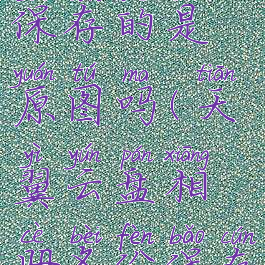 保存的是
yuán tú ma tiān
原图吗(天
yì yún pán xiāng
翼云盘相
cè bèi fèn bǎo cún